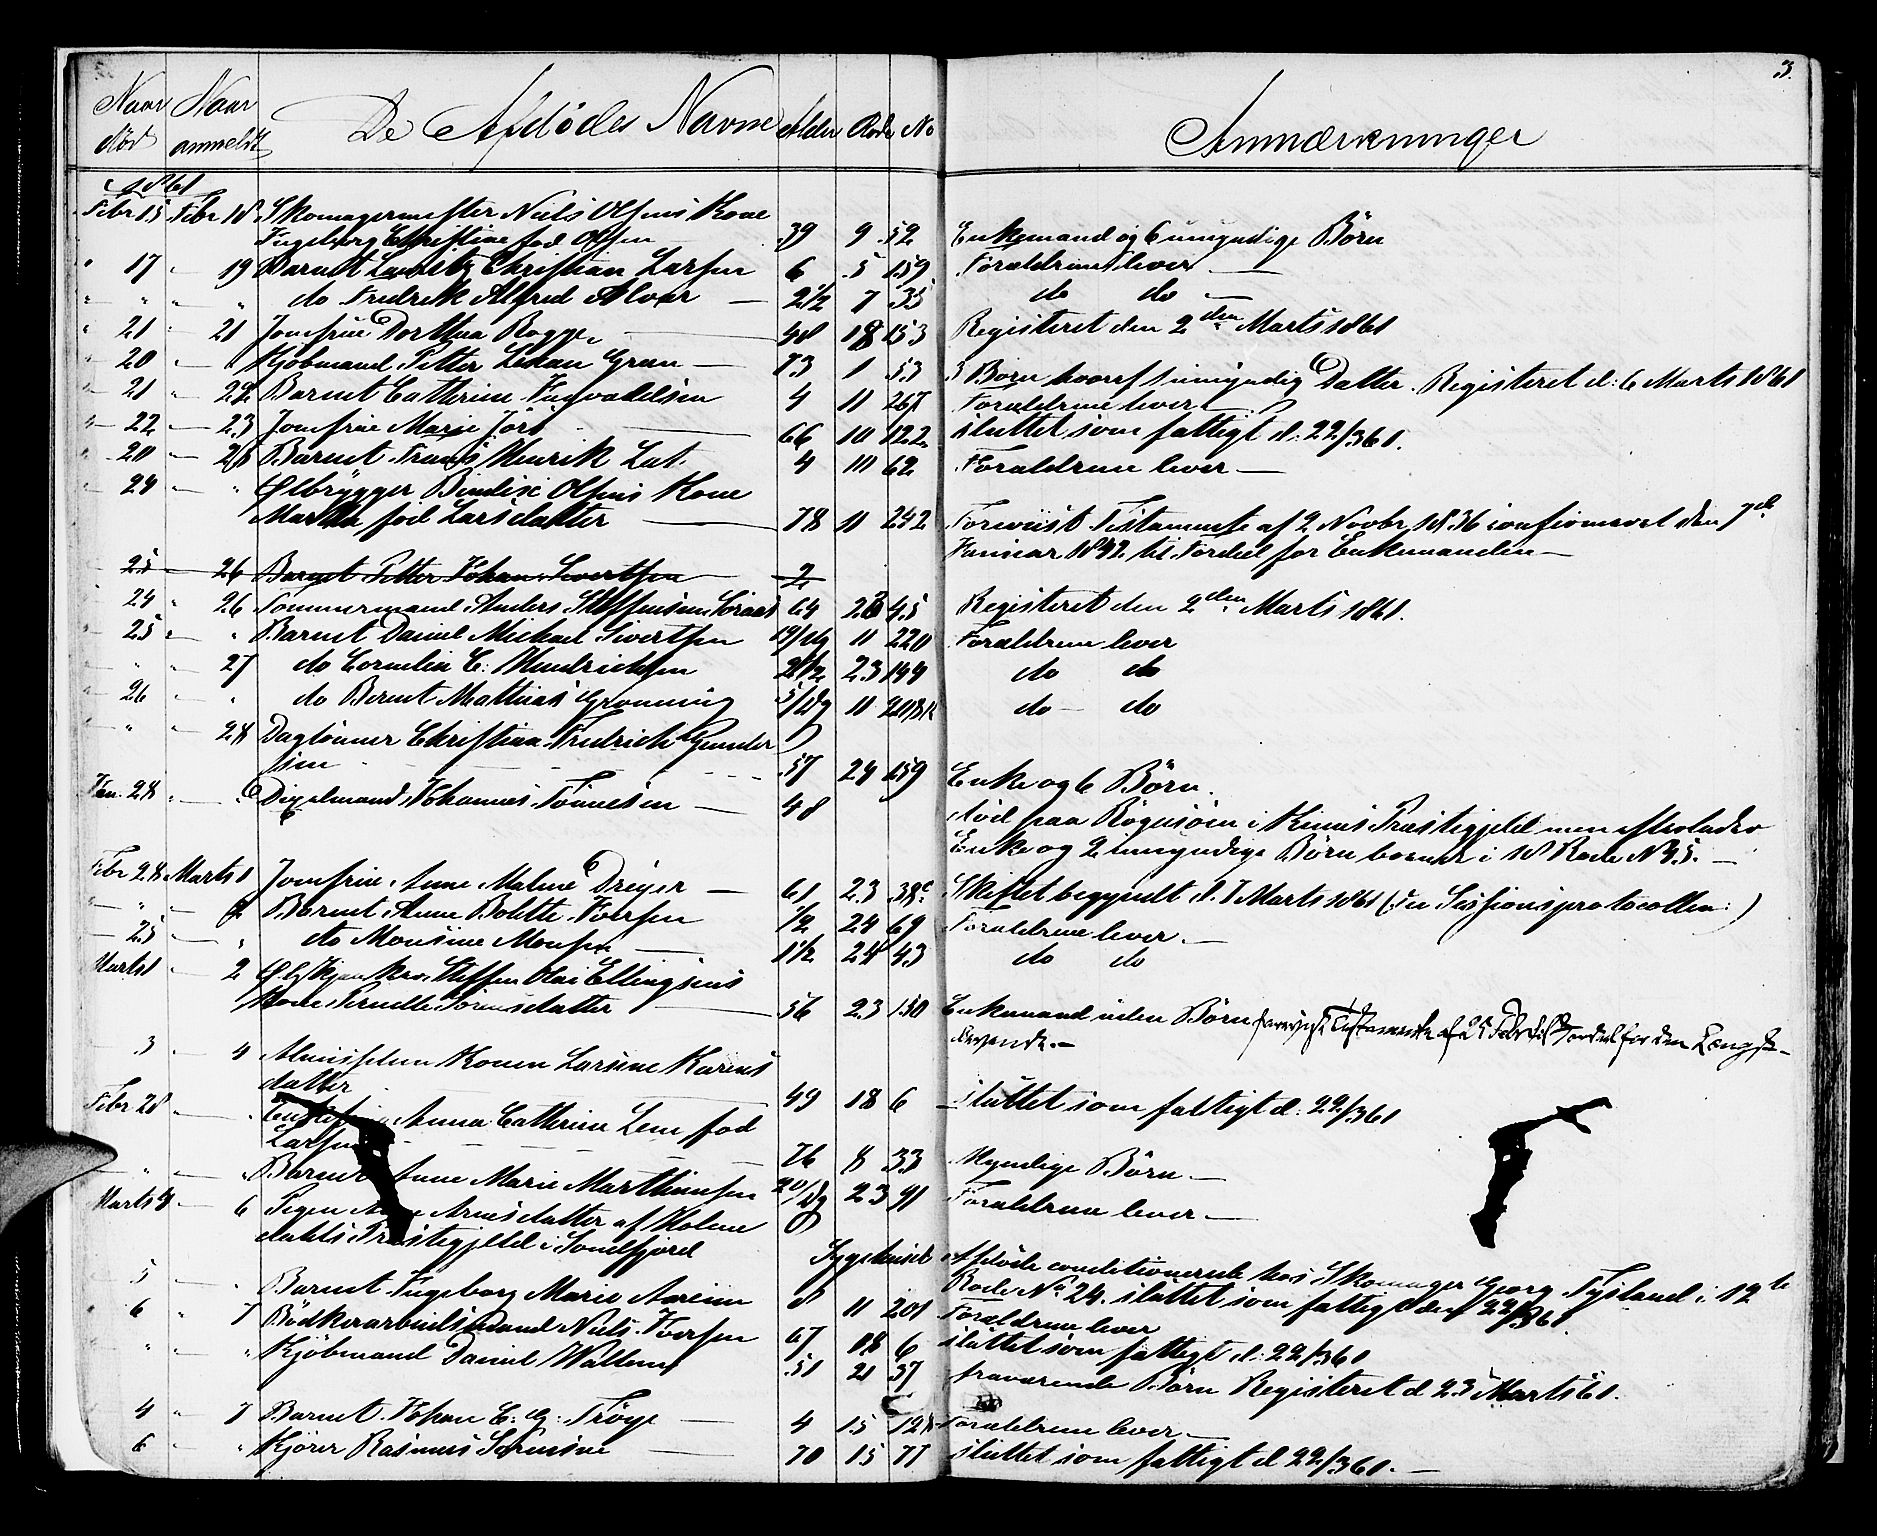 3.
Naar død Naar anmeldt De Afdødes Navne Alder Rode No Anmærkninger
1861
Febr 15 Febr 18 Skomagermester Niels Olsens Kone
Ingeborg Christine fød Olsen 39 9 52 Enkemand og 6 umyndige Børn
" 17 — 19 Barnet Christian Larsen 6 5 159 Forældrene lever —
" " " " do Fredrik Alfred Alver — 2 1/2 7 35 do do —
" 21 — 21 Jomfrue Dorthea Bagge 48 18 153 Registeret den 2den Marts 1861
" 20 — " Kjøbmand Petter Gran — 73 1 53 5 Børn hvoraf 1 umyndig Datter. Registeret d: 6 Marts 1861
" 21 — 22 Barnet Cathrine Ingvaldsen 4 11 267 Forældrene lever —
" 22 — 23 Jomfrue Marie 66 10 122 sluttet som fattigt d. 22/3 61.
" 20 — Barnet Frants Henrik 4 10 62 Forældrene lever —
" 24 — " Ølbrygger Bendix Olsens Kone
Martha fød Larsdatter — 78 11 242 Forevist Testamente af 2 Novbr 1836 confirmeret den 7de
Januar 1842 til Fordel for Enkemanden —
25 — 26 Barnet Petter Johan Sivertsen — 2
24 " 26 Tømmermand Anders Steffensen 64 23 45 Registeret den 2den Marts 1861.
" 25 " " Barnet Daniel Michael Sivertsen 19/Dg 11 220 Forældrene lever
" " 27 do Cornelia C: Hendrichsen 2 1/2 23 199 do do
" 26 — " do Bernt Mathias Grønning 5/Dg 11 do — do
" " — 28 Daglønner Christian Fredrich Gunder
sen 57 24 159 Enke og 6 Børn.
Jan. 28 " — " Dixelmand Johannes Tønnesen — 48 død paa i Kinns Præstegjeld men efterlader
Enke og 2 umyndige Børn boende i 18 Rode No 95. —
Febr 28 Marts 1 Jomfrue Anne Malene Dreyer — 61 23 38c Skiftet begyndt d. 7 Marts 1861 (see Sessionsprotocollen:)
" " — 2 Barnet Anne Bolette Iversen 1/2 24 69 Forældrene lever. —
— 25 — " do Monsine Monsen — 1 1/2 24 43 do do
Marts 1 — 2 Steffen Olai Ellingsens
Kone Pernille Sørensdatter — 56 23 150 Enkemand uden Børn forevist Testamente af 25 Febr til Fordel for den Længst-
levende. —
3 — 4 Almisselem Konen Larsine Karines
datter — 49 18 6 — sluttet som fattigt d: 22/3 61
Febr 28 — " Anna Cathrine Lem fød
Larsen — 76 8 33 Myndige Børn —
" — " Barnet Anne Marie Marthinsen 20/Dg 23 91 Forældrene lever —
Marts 4 — 6 Pigen Arnesdatter af Holme
dahls Præstegjeld i Søndfjord Sygehuset Afdøde conditionerede hos Skomager Georg Tysland i 12te
Rode No 24. sluttet som fattigt den 22/3 61
5 — " Barnet Ingeborg Marie 8 11 201 Forældrene lever
" 6 " 7 Bødkerarbeidsmand Niels Iversen 67 18 6 sluttet som fattigt d: 22/3 61
" — " Kjøbmand Daniel Wallem 51 21 37 fraværende Børn Registeret d 25 Marts 61.
4 " 7 Barnet Johan C: G: — 4 15 128 Forældrene lever. —
6 — " Kjører Rasmus Sørensen — 70 15 77 sluttet som fattigt d 22/3 61. —